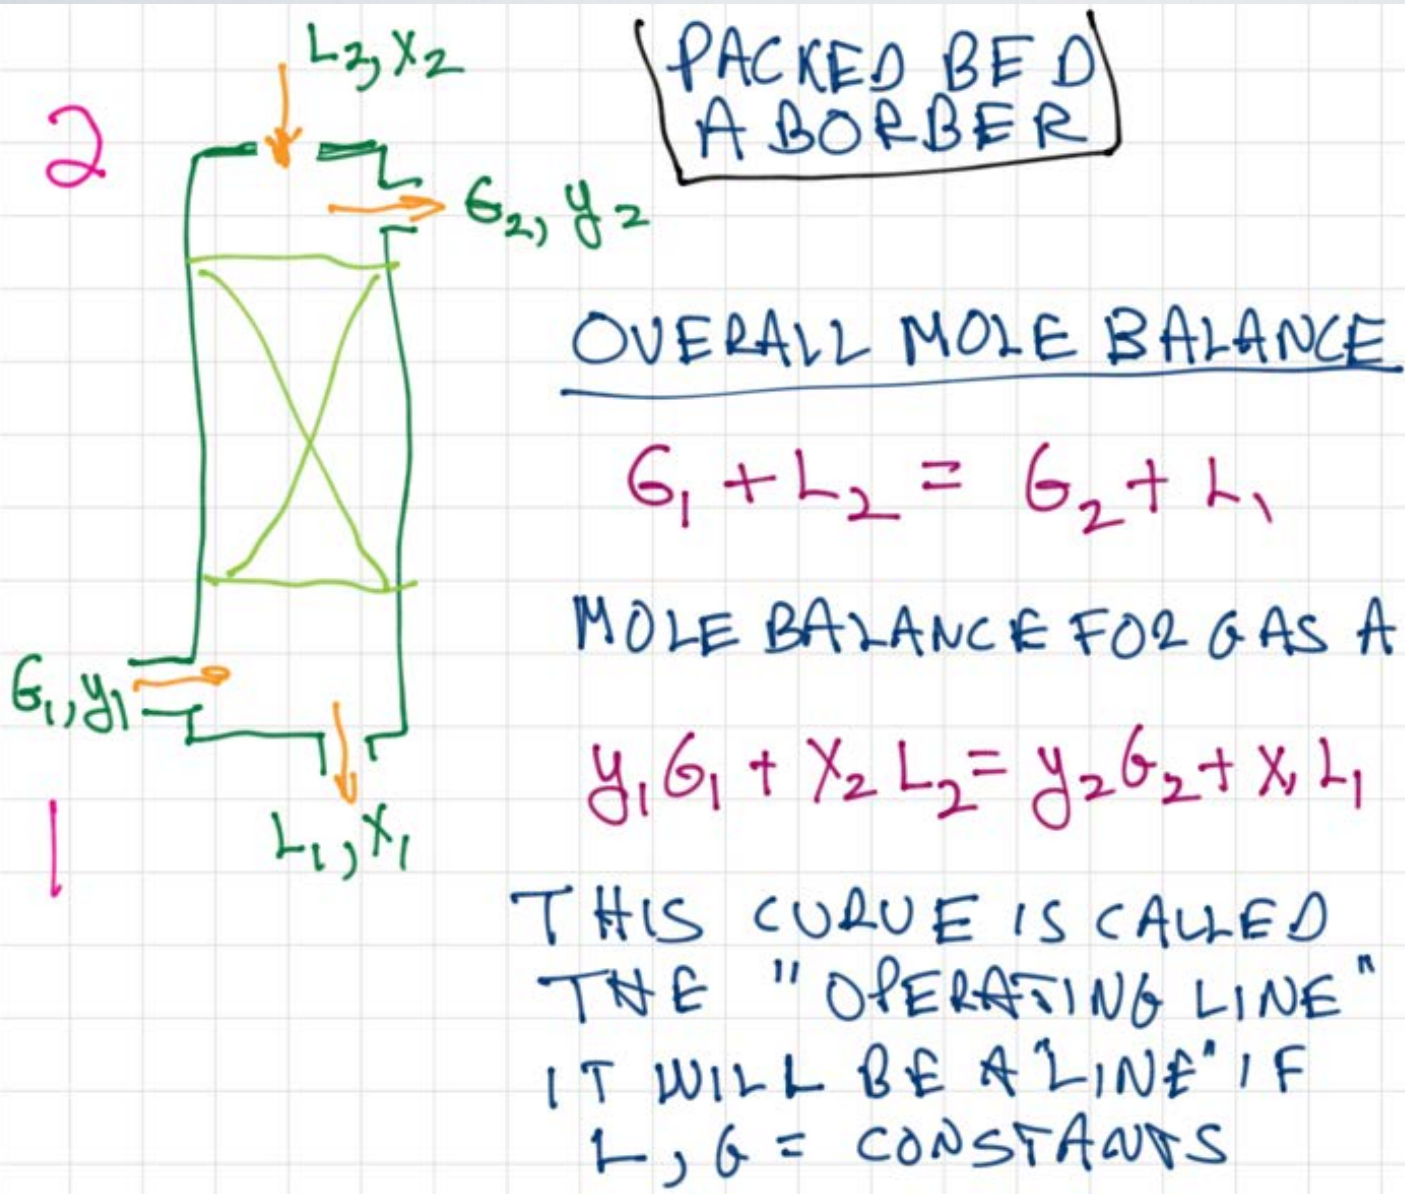 L2, x2
PACKED BED
ABORBER
2
G2, y2
OVERALL MOLE BALANCE
G1 + L2 = G2 + L1
MOLE BALANCE FOR GAS A
G1, y1
y1 G1 + x2 L2 = y2 G2 + x1 L1
1
L1, x1
THIS CURVE IS CALLED
THE "OPERATING LINE"
IT WILL BE A "LINE" IF
L, G = CONSTANTS